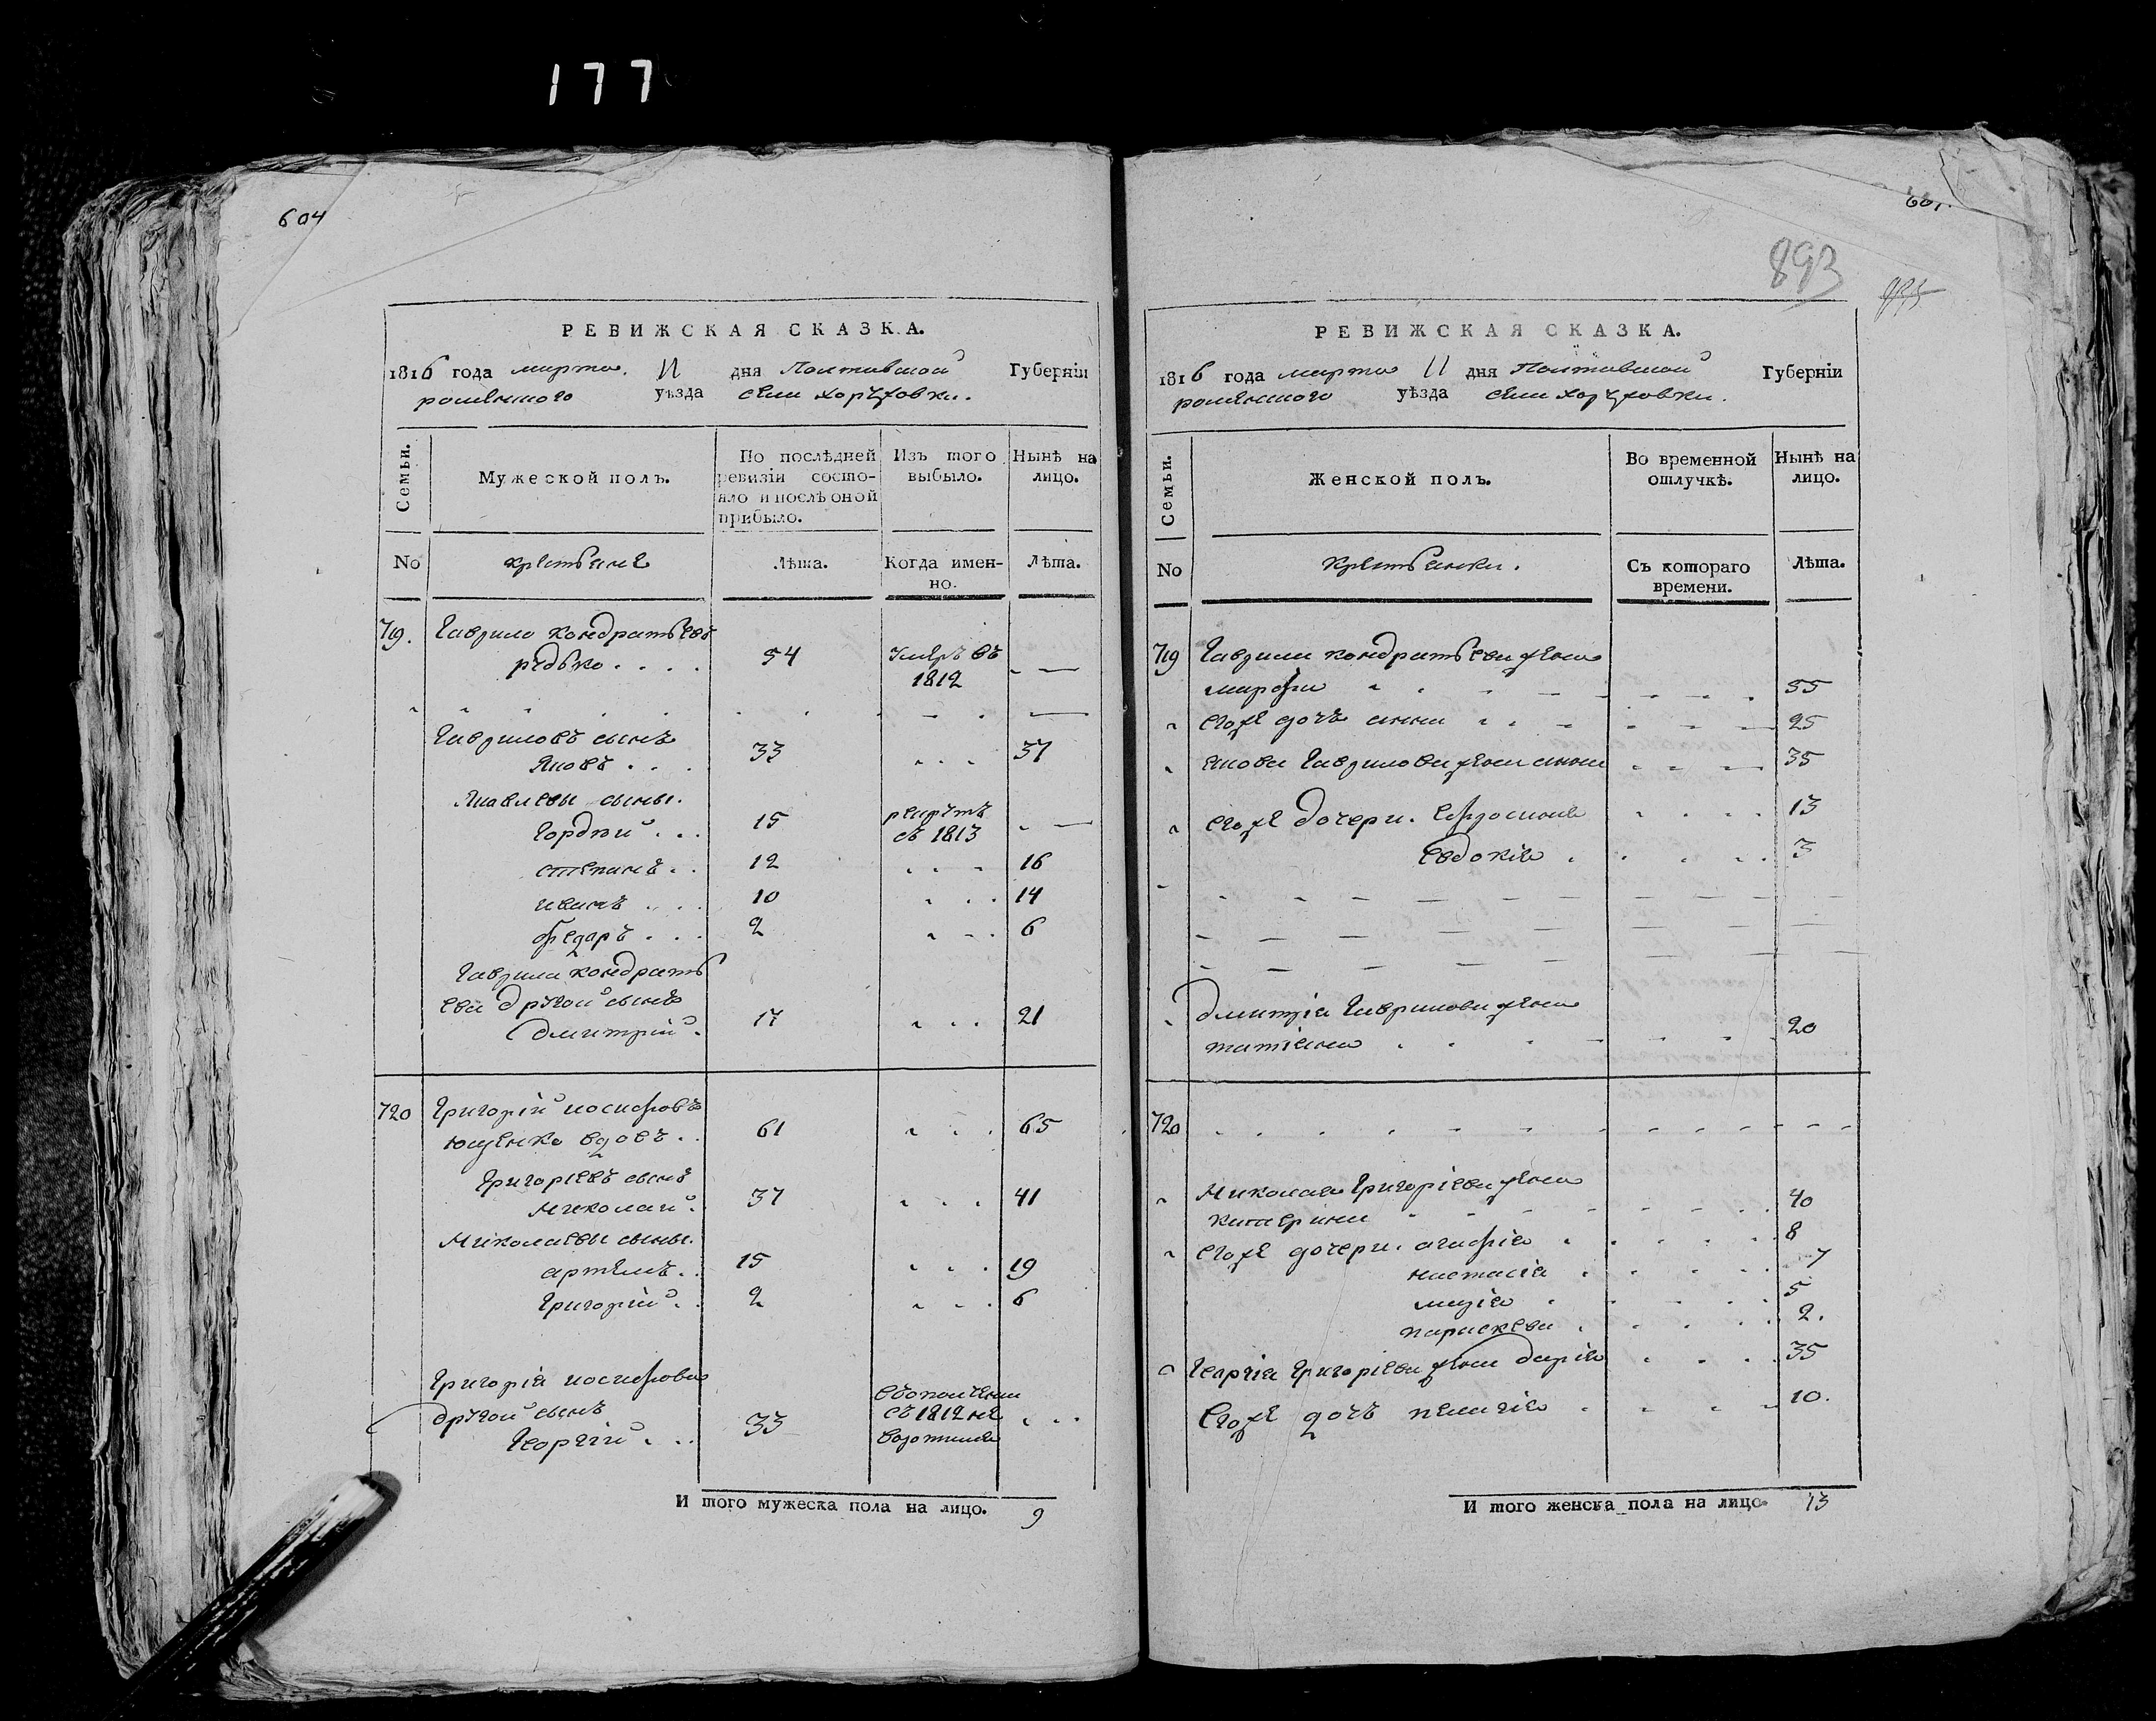 177
604
РЕВИЖСКАЯ СКАЗКА.
1816 года марта 11 дня Полтавской Губерніи
роменского уѣзда села Хоружовки.
Семьи.
Мужеской полъ.
По послѣдней ревизіи состояло и послѣ оной прибыло.
Изъ того выбыло.
Нынѣ на лицо.
No
крестьяне
Лѣта.
Когда именно.
Лѣта.
719. Гаврило кондратьевъ
редько 54 умеръ въ 1812 —
Гавриловъ сынъ
Яковъ 33 37
Яковлевы сыны.
Гордѣй 15 рекрутъ въ 1813 —
степанъ 12 16
иванъ 10 14
федаръ 2 6
Гаврила кондрать
ева другой сынъ
дмитрій 17 21
720 Григорій иосифовъ
ющенко вдовъ 61 65
Григоріевъ сынъ
Николай 37 41
Николаевы сыны.
артемъ 15 19
Григорій 2 6
Григорія иосифова
другой сынъ
Георгій 33 въ 1812
И того мужеска пола на лицо. 9
893
РЕВИЖСКАЯ СКАЗКА.
1816 года марта 11 дня Полтавской Губерніи
роменского уѣзда села Хоружовки.
Семьи.
Женской полъ.
Во временной отлучкѣ.
Нынѣ на лицо.
No
Крестьянки.
Съ котораго времени.
Лѣта.
719 Гаврила кондратьева жена
марфа 55
егоже дочь анна 25
якова Гаврилова жена анна 35
егоже дочери. Ефросинія 13
евдокія 3
дмитрія Гаврилова жена
татіана 20
720
Николая Григоріева жена
катерина 40
егоже дочери. агафія 8
настасія 7
марія 5
параскева 2.
Георгія Григоріева жена дарія 35
Егоже дочь пелагія 10.
И того женска пола на лицо. 13